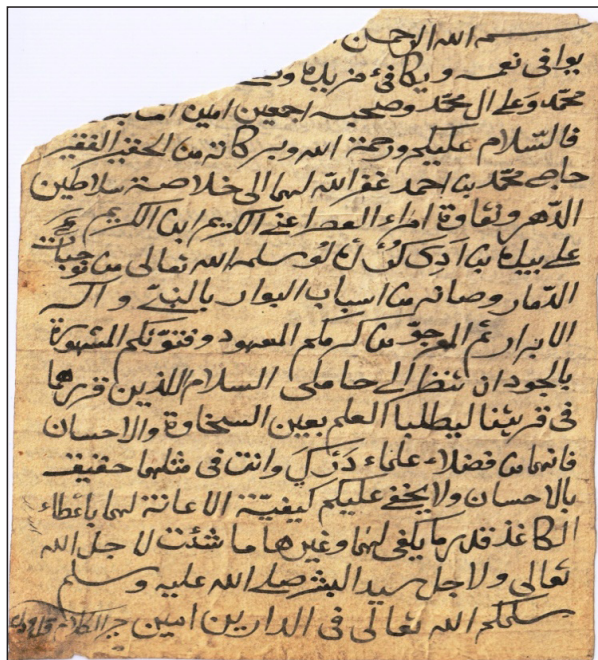 بسم الله الرحمن
يوافي نعمه ويكافئ مزيده
محمّد وعلى ال محمّد وصحبه اجمعين امين
فالسّلام عليكم ورحمة الله وبركاته من الحقير الفقير
حاجي محمّد بن احمد غفر الله لهما الى خلاصة سلاطين
الدّهر ونقاوة امراء العصر اعني الكريم ابن الكريم
علي بيك بن سلمه الله تعالى من موجبات
الدّمار وصانه من اسباب البوار بالنبيّ واله
الابرار ثم المرجوّ من كرمكم المعهود وفتوّتكم المشهورة
بالجود ان تنظر الى حاملي السلام اللذين قررهما
في قريتنا ليطلبا العلم بعين السخاوة والاحسان
فانهما من فضلاء علماء وانت في مثلهما حقيق
بالاحسان ولا يخفى عليكم كيفيّة الاعانة لهما باعطاء
الكاغذ قدر ما يكفي لهما وغيرها ما شئت لاجل الله
تعالى ولاجل سيد البشر صلى الله عليه وسلم
سلمكم الله تعالى في الدارين امين